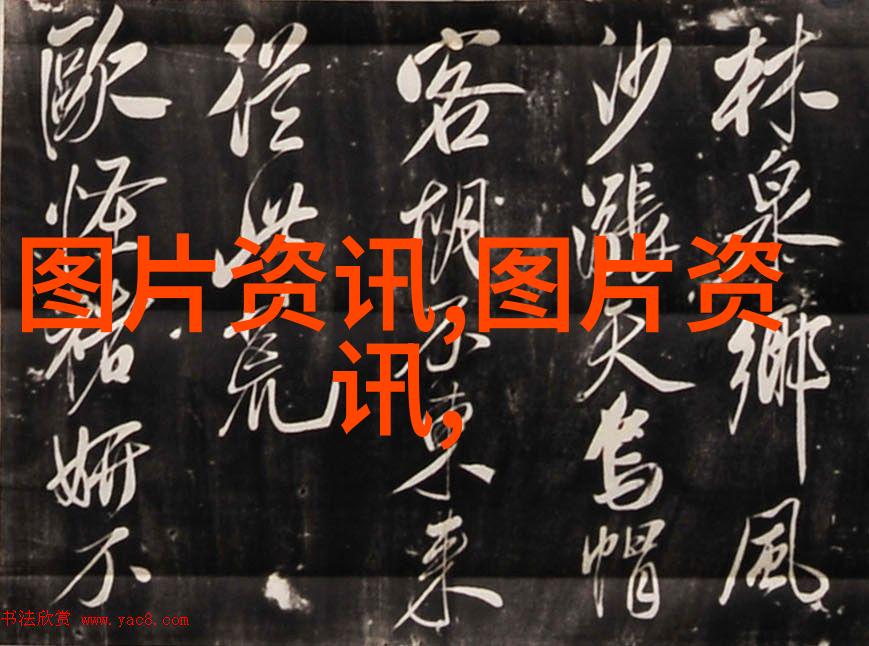 林泉鄉風
沙漲天烏帽
客胡不東來
從此荒
歐怪褚妍不
图片资讯,图片资
讯,
书法欣赏 www.yac8.com